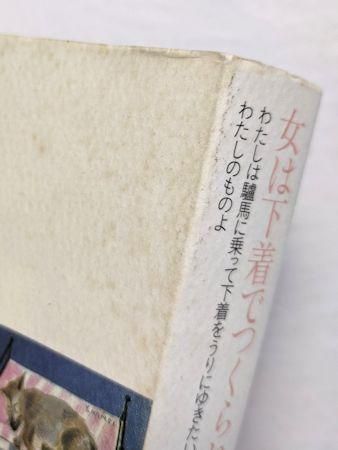 女は下着でつくら
わたしは驢馬に乗って下着をうりにゆきたい
わたしのものよ